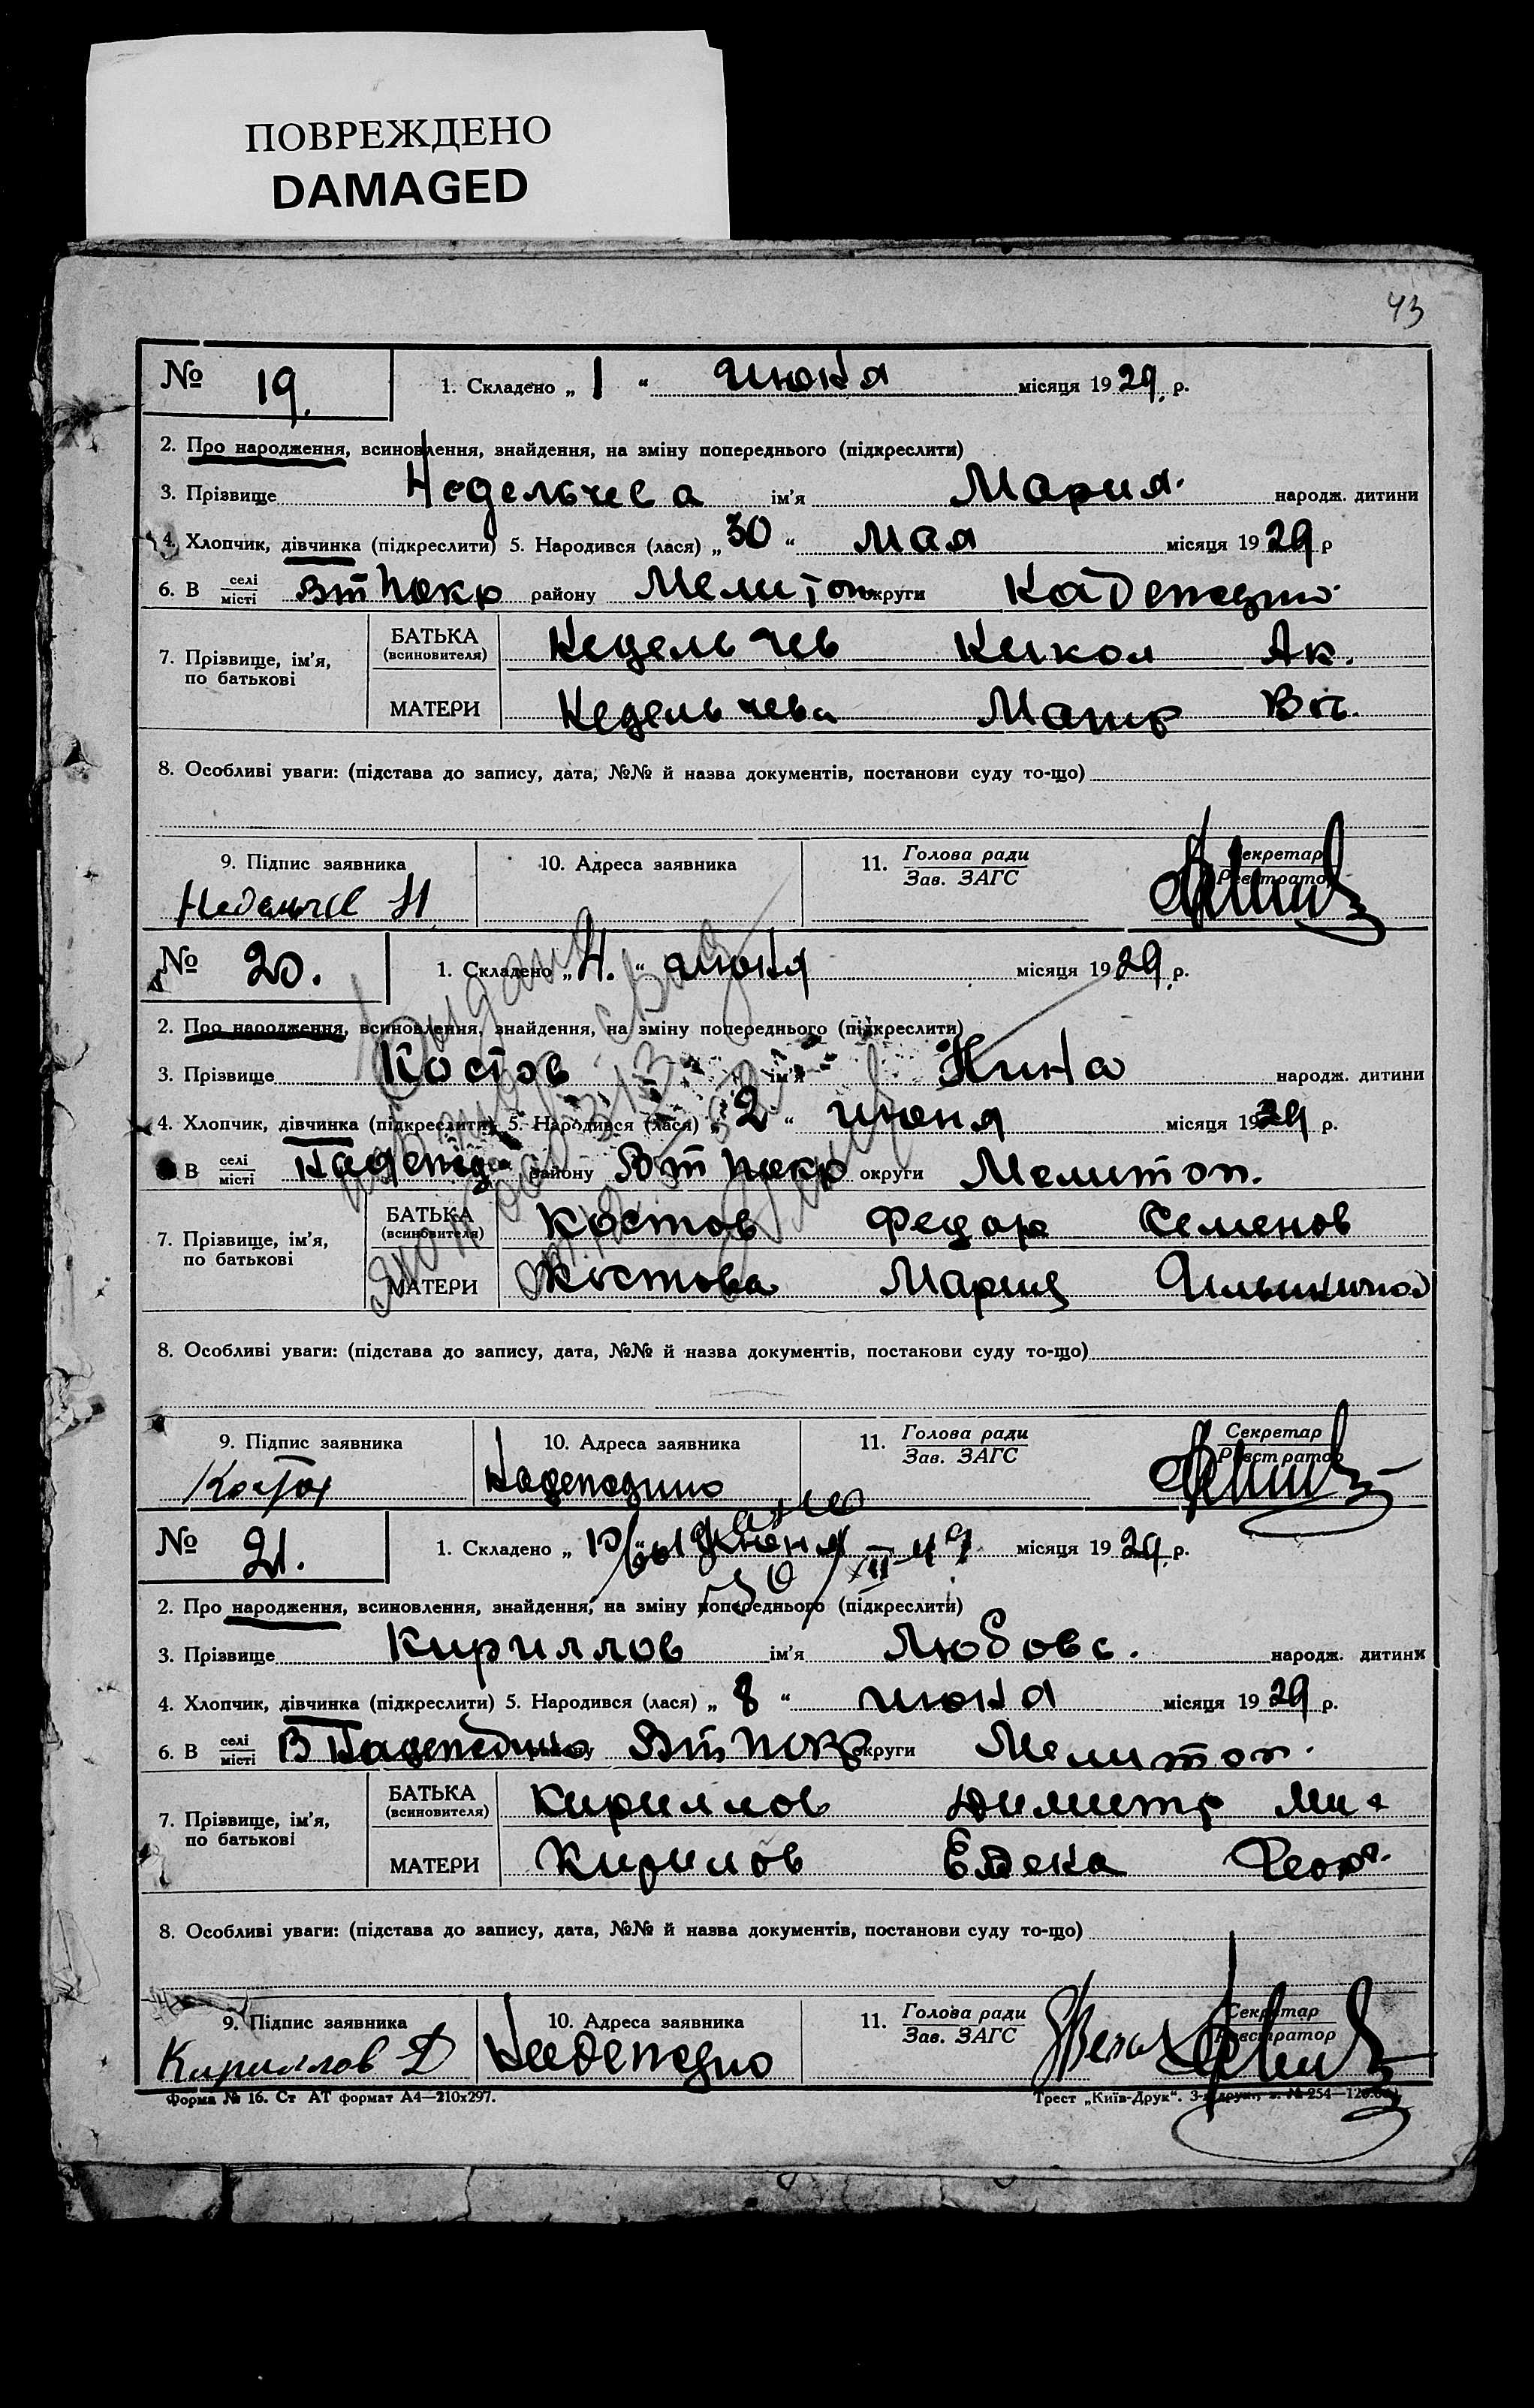 ПОВРЕЖДЕНО
DAMAGED
43
№ 19. 1. Складено „ 1 “ Июня місяця 1929 р.
2. Про народження, всиновлення, знайдення, на зміну попереднього (підкреслити)
3. Прізвище Недельчева ім’я Мария. народж. дитини
4. Хлопчик, дівчинка (підкреслити) 5. Народився (лася) „ 30 “ Мая місяця 1929 р
6. В селі місті Вт Покр району Мелитоп округи
7. Прізвище, ім’я, по батькові
БАТЬКА (всиновителя) Недельчев Никол Ак.
МАТЕРИ Недельчева
8. Особливі уваги: (підстава до запису, дата, №№ й назва документів, постанови суду то-що)
9. Підпис заявника 10. Адреса заявника 11. Голова ради Зав. ЗАГС Секретар Реєстратор
№ 20. 1. Складено „ 4. “ июня місяця 1929 р.
2. Про народження, всиновлення, знайдення, на зміну попереднього (підкреслити)
3. Прізвище Костов ім’я Нина народж. дитини
4. Хлопчик, дівчинка (підкреслити) 5. Народився (лася) „ 2 “ июня місяця 1929 р.
6. В селі місті району Вт Покр округи Мелитоп.
7. Прізвище, ім’я, по батькові
БАТЬКА (всиновителя) Костов Федор Семенов
МАТЕРИ Костова Мария
8. Особливі уваги: (підстава до запису, дата, №№ й назва документів, постанови суду то-що)
9. Підпис заявника 10. Адреса заявника 11. Голова ради Зав. ЗАГС Секретар Реєстратор
Костов
№ 21. 1. Складено „ 10 “ Июня місяця 1929 р.
2. Про народження, всиновлення, знайдення, на зміну попереднього (підкреслити)
3. Прізвище Кириллов ім’я Любовь. народж. дитини
4. Хлопчик, дівчинка (підкреслити) 5. Народився (лася) „ 8 “ июня місяця 1929 р.
6. В селі місті району Вт Покр округи Мелитоп.
7. Прізвище, ім’я, по батькові
БАТЬКА (всиновителя) Кириллов Димитр
МАТЕРИ Кирилов Геор.
8. Особливі уваги: (підстава до запису, дата, №№ й назва документів, постанови суду то-що)
9. Підпис заявника 10. Адреса заявника 11. Голова ради Зав. ЗАГС Секретар Реєстратор
Кириллов Д
Форма № 16. Ст АТ формат А4—210х297. Трест „Київ-Друк“.